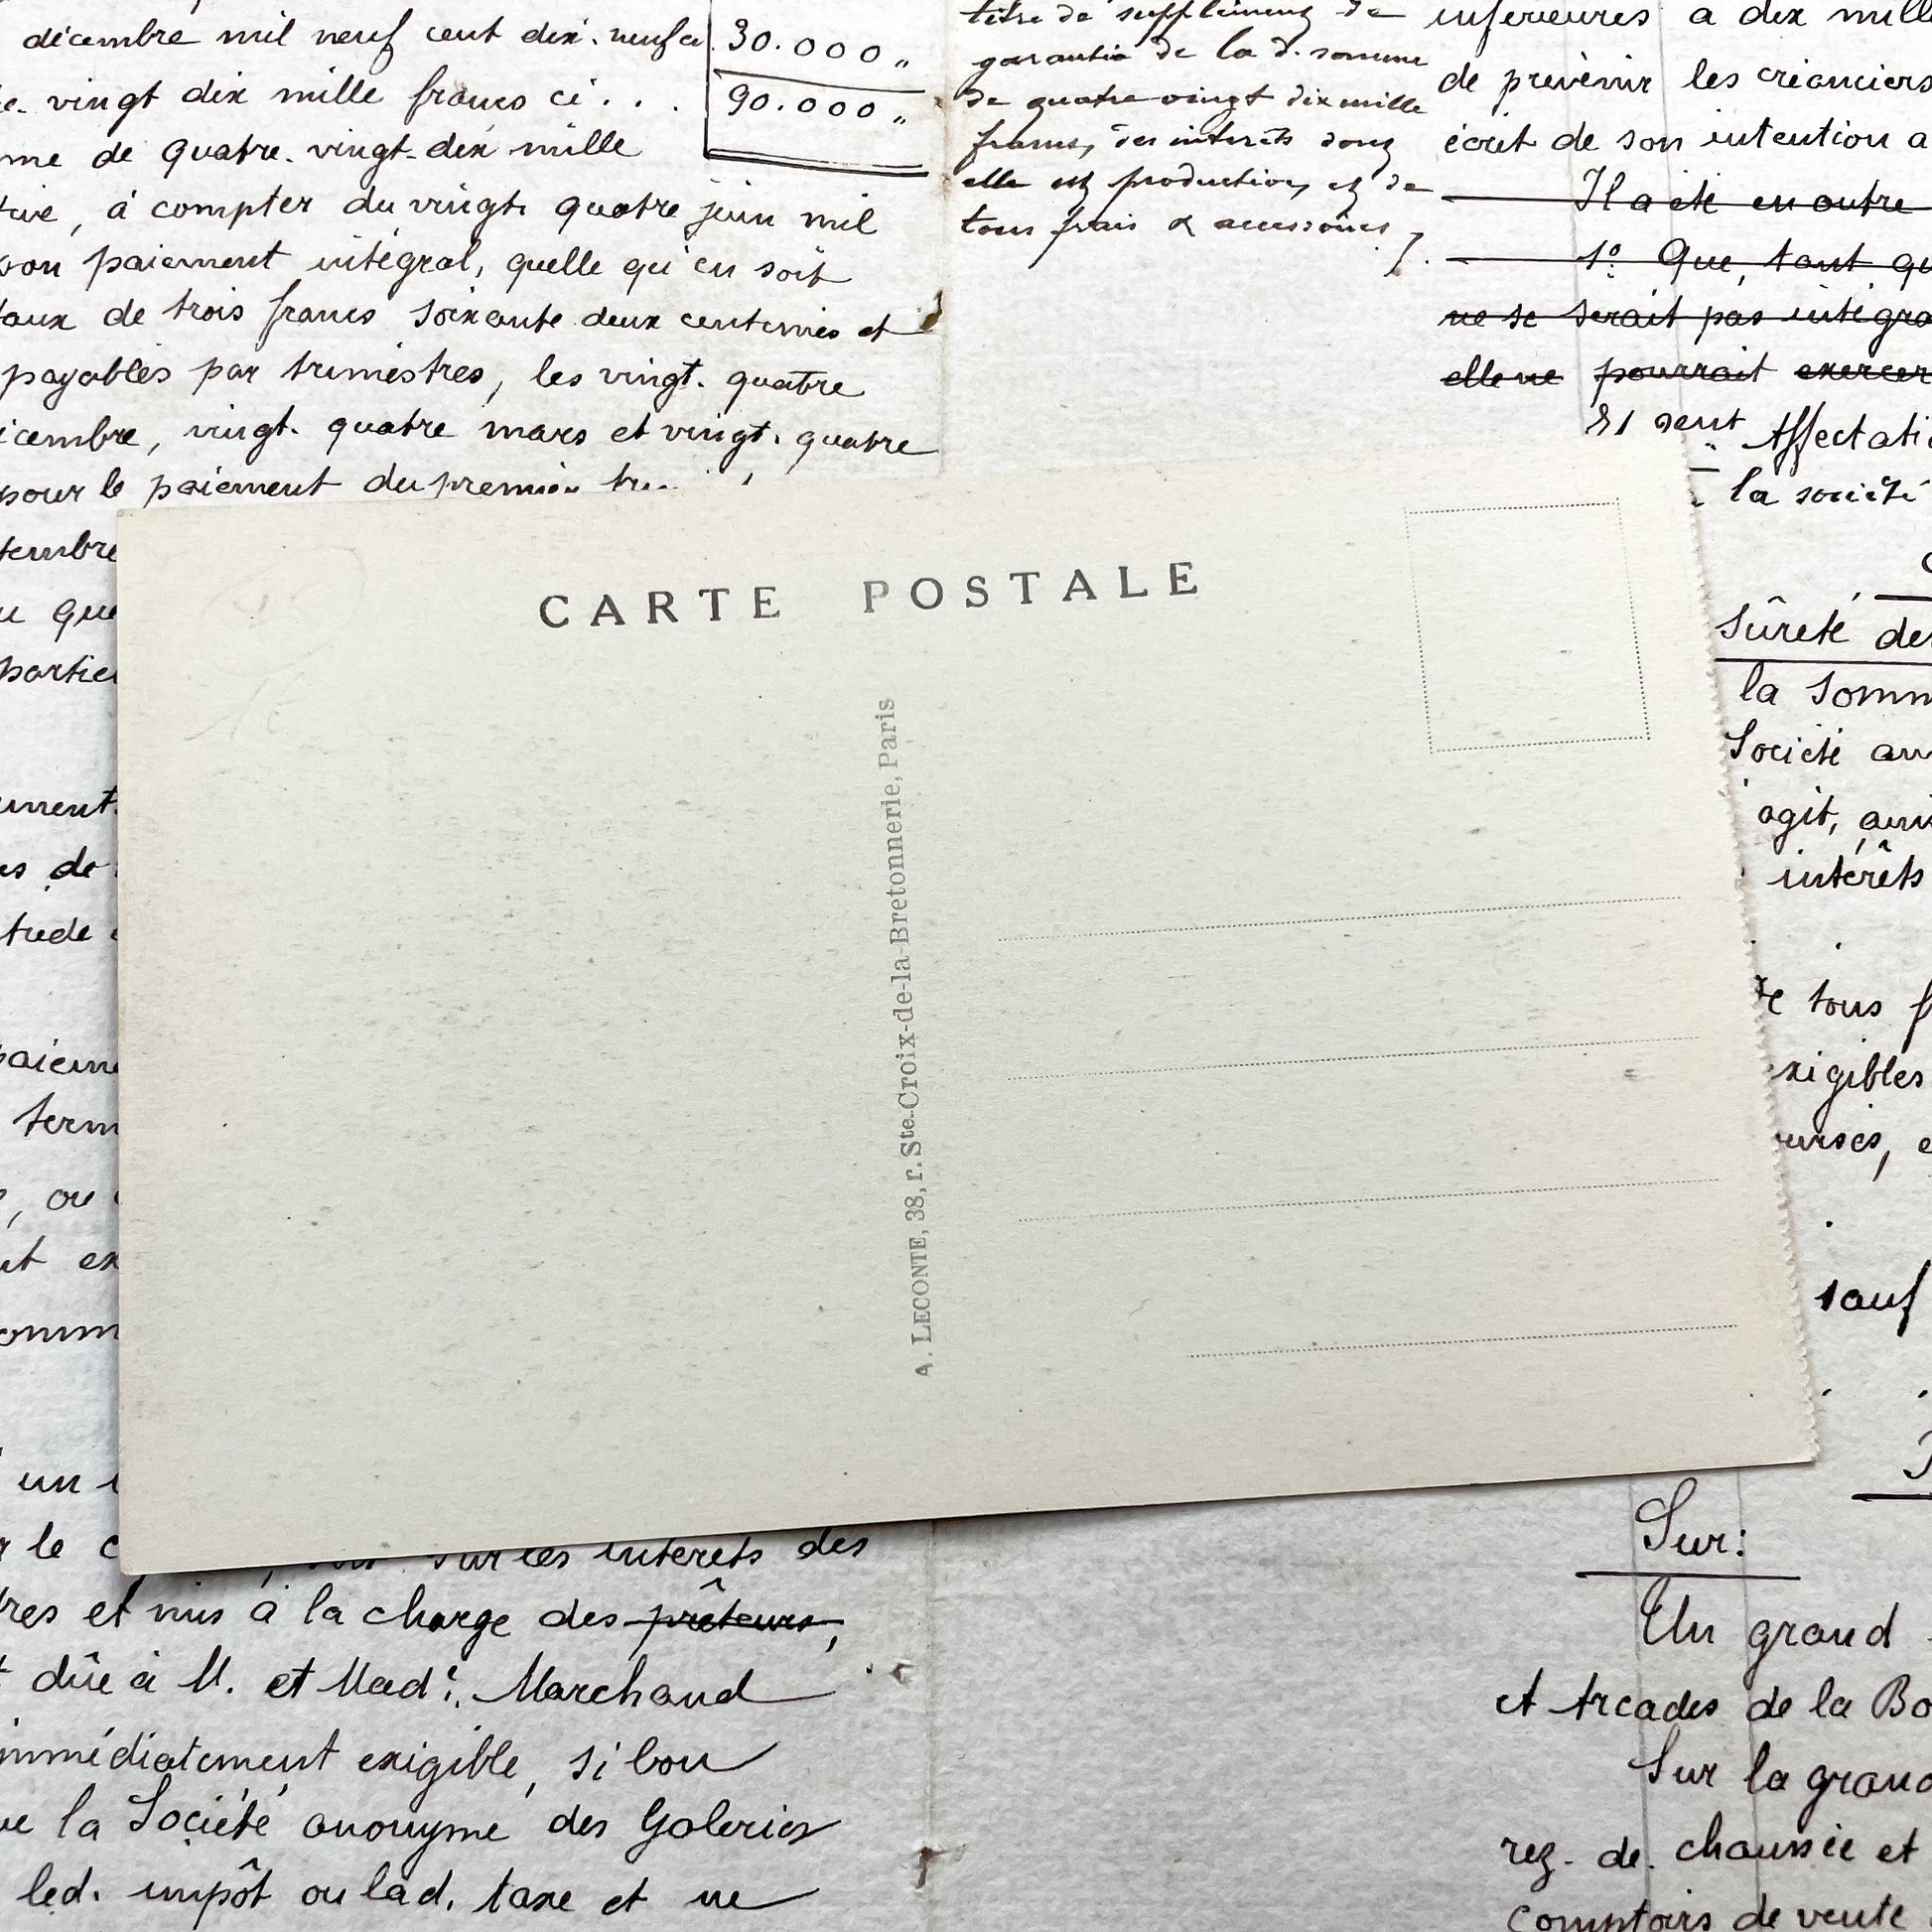 décembre mil neuf cent dix-neuf ci
30.000 "
vingt dix mille francs ci . . .
90.000 "
me de quatre-vingt-dix mille
à compter du vingt quatre juin mil
son paiement intégral, quelle qu'en soit
taux de trois francs soixante deux centimes et
payables par trimestres, les vingt-quatre
décembre, vingt-quatre mars et vingt-quatre
pour le paiement du premier
tembre
que
partie
ument
de
tude
paieme
term
, ou
ut ex
omm
un
le c
sur les intérêts des
res et mis à la charge des prêteurs,
dûe à M. et Mad. Marchand
immédiatement exigible, si bon
la Société anonyme des Galeries
led. impôt ou lad. taxe et ne
titre de supplément de
garantie de la d. somme
de quatre-vingt dix mille
francs, des intérêts dont
elle est productive, et de
tous frais & accessoires
CARTE POSTALE
A. LECONTE, 38, r. Ste-Croix-de-la-Bretonnerie, Paris
inférieures à dix mill
de prévenir les créanciers
écrit de son intention a
Il a été en outre
1º Que, tant qu
ne se serait pas intégra
elle ne pourrait exercer
Affectati
la société
sûreté de
la somm
Société an
agit,
intérêts
tous f
xigibles
urses, e
sauf
Sur:
Un grand
et Arcades de la Bo
Sur la grand
rez-de-chaussée et
comptoirs de vente